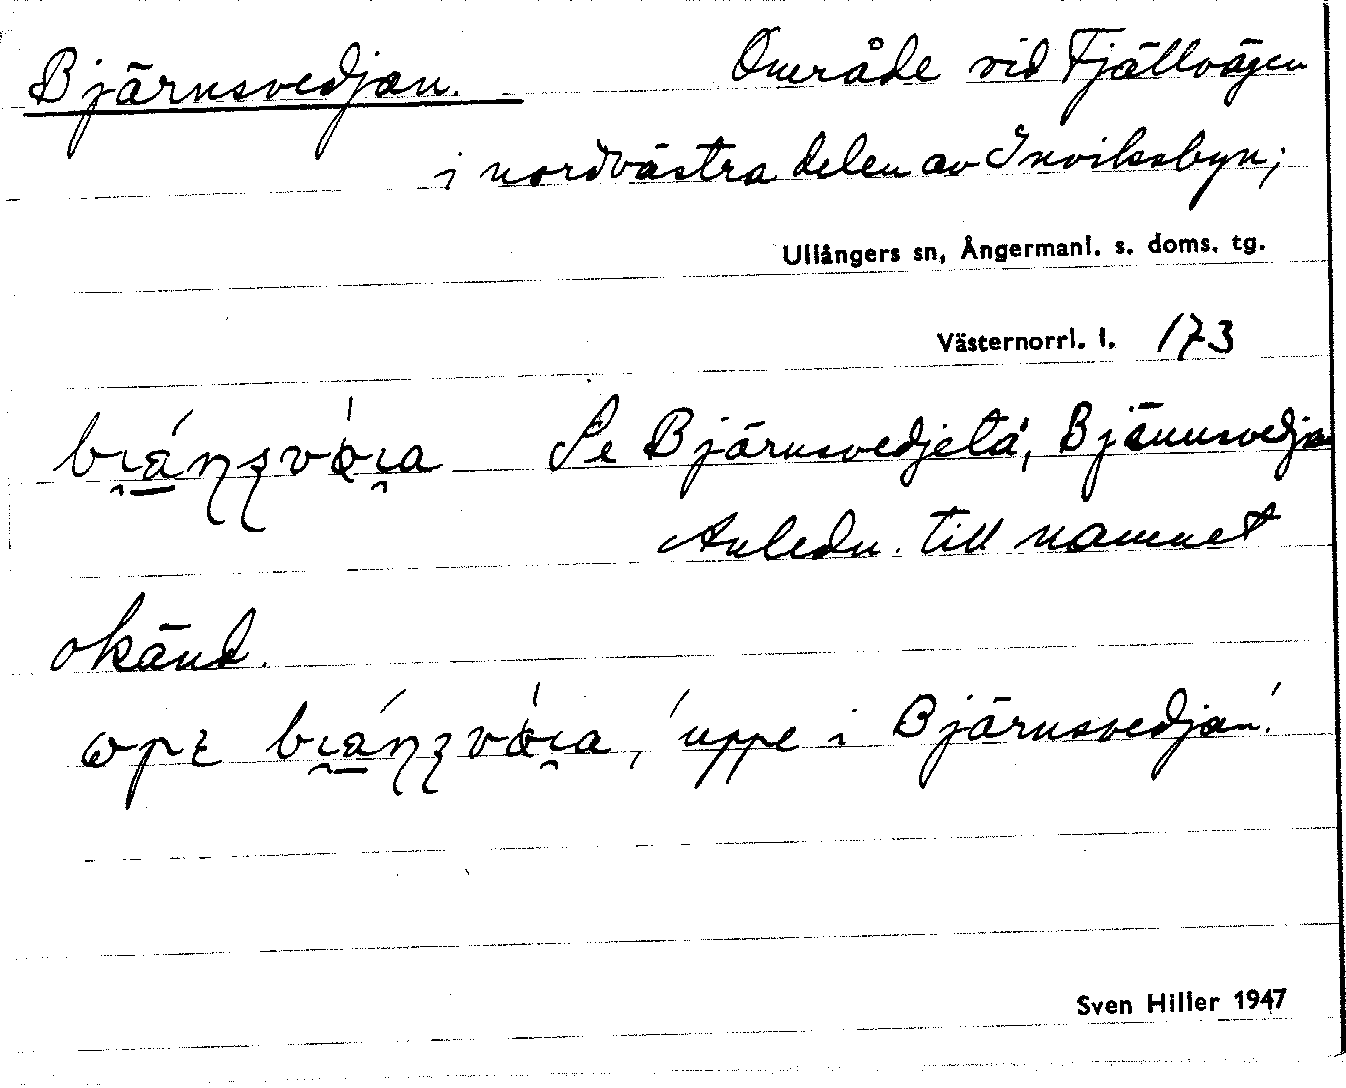 Bjärnsvedjan. Område vid Fjällvägen
i nordvästra delen av Inviksbyn;
Ullångers sn, Ångermanl. s. doms. tg.
Västernorrl. l. 173
Se Bjärnsvedjetå, Bjännsvedja
Anledn. till namnet
okänd.
'uppe i Bjärnsvedjan'
Sven Hiller 1947